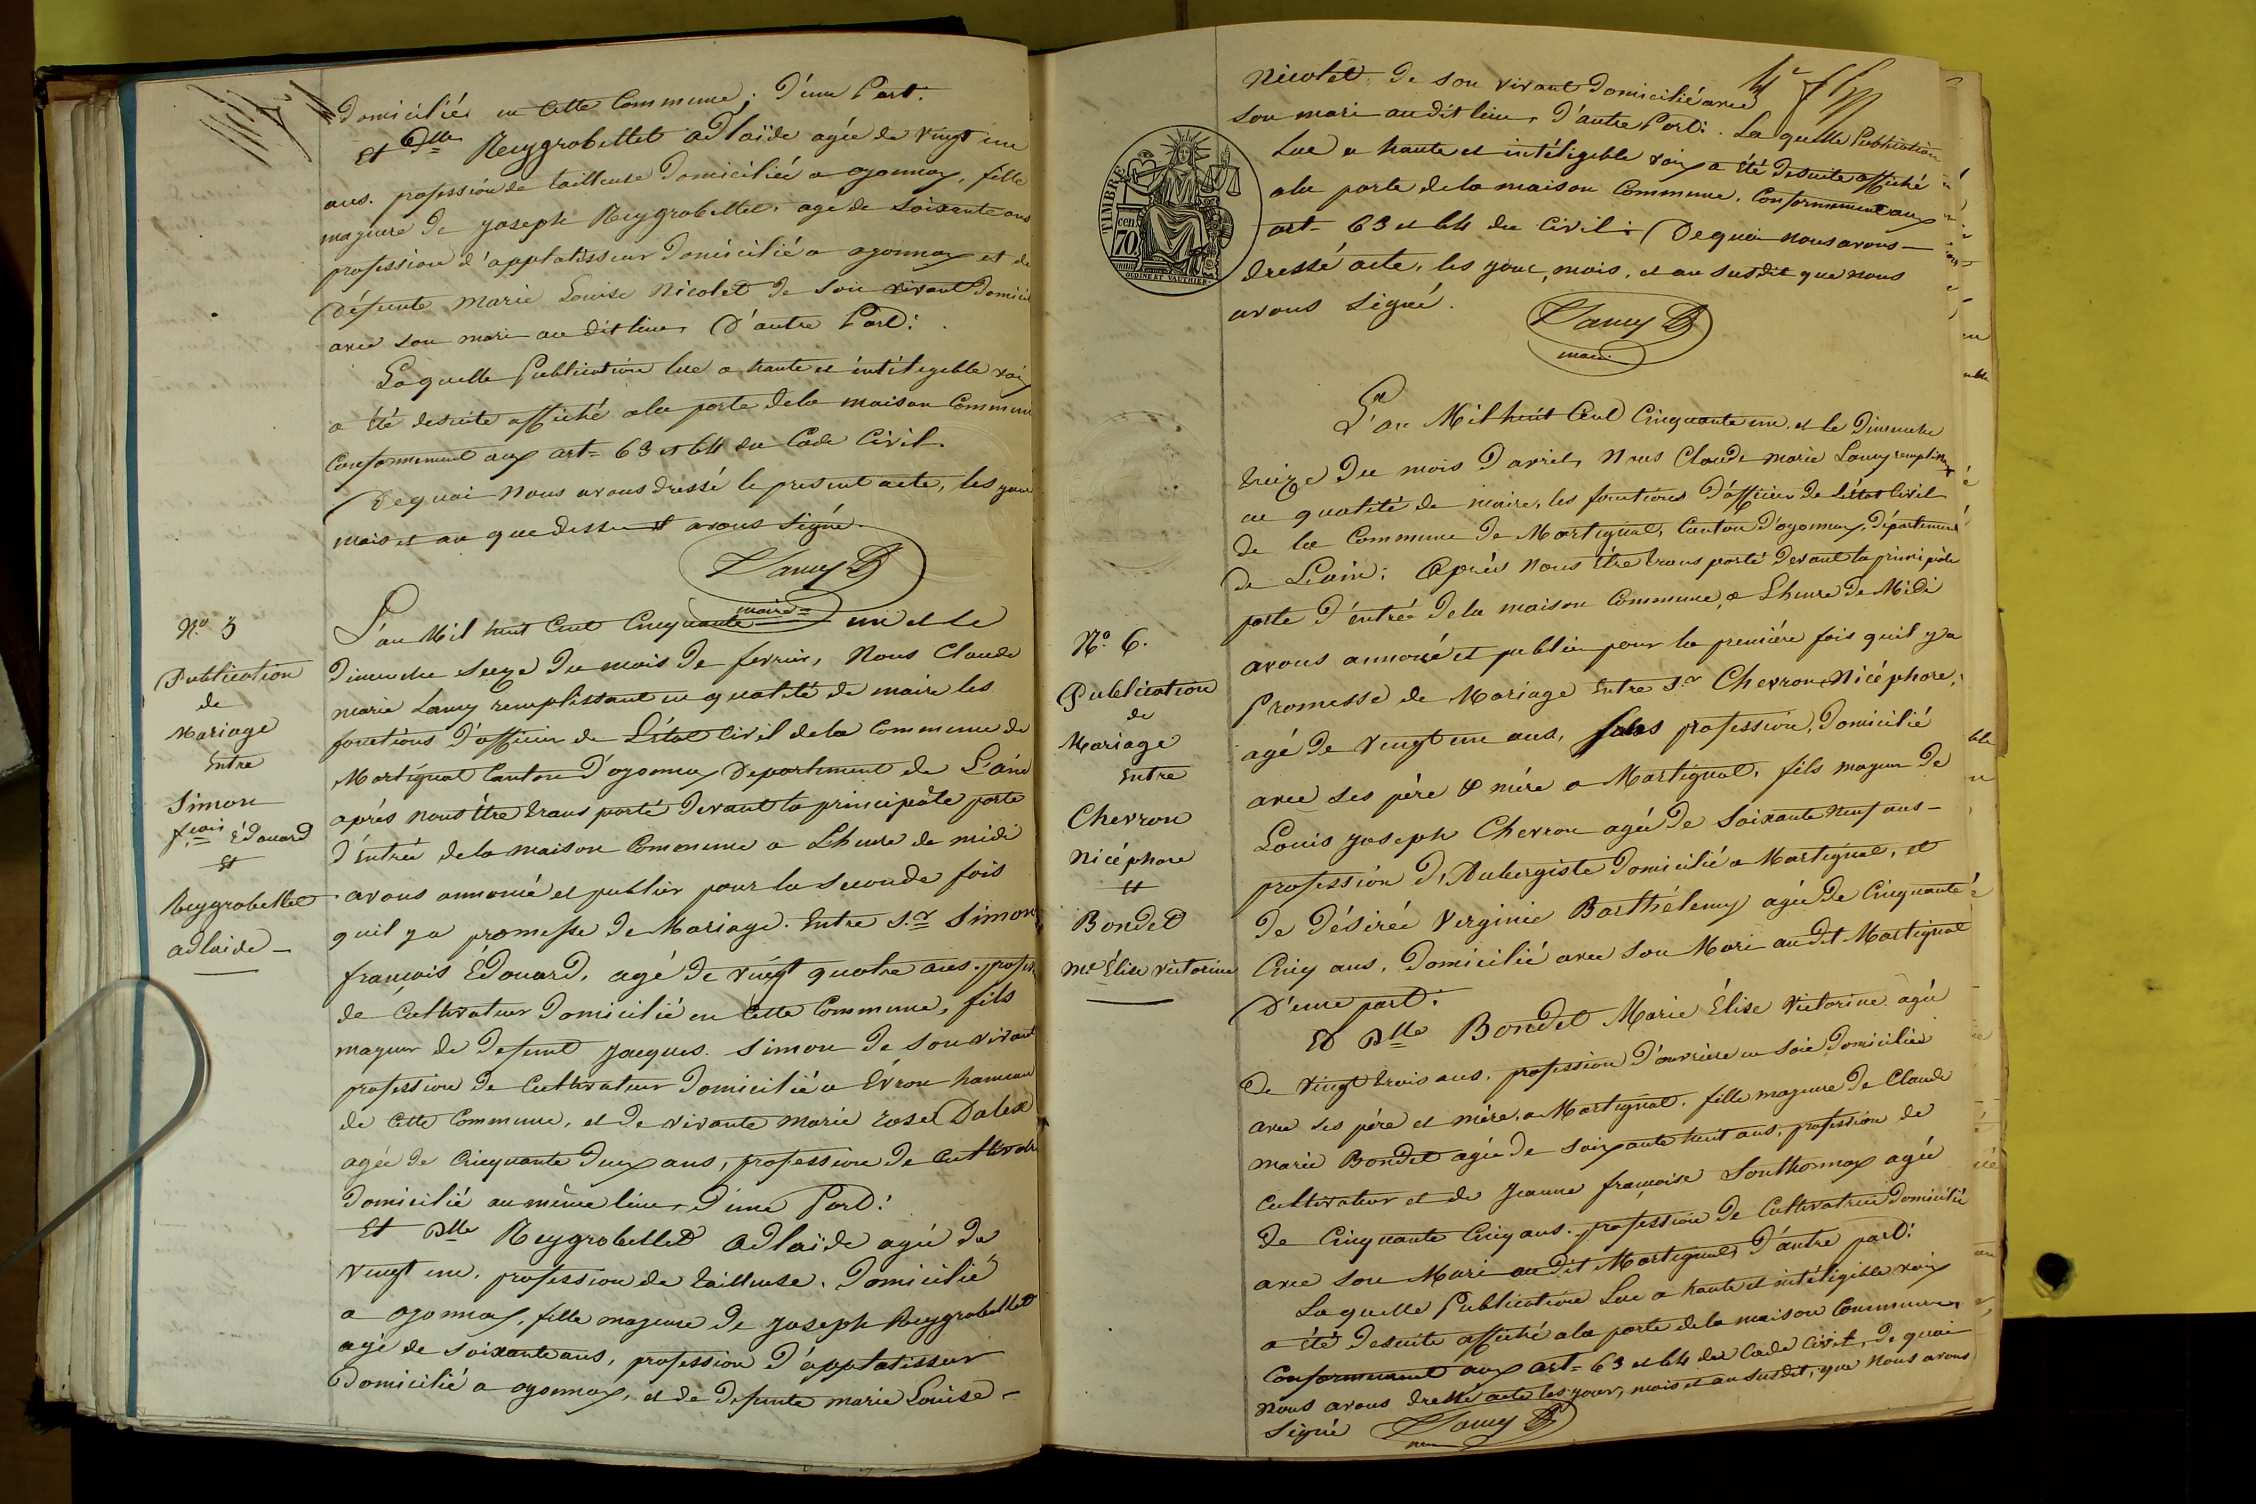 domiciliés en Cette Commune; D'une Part.
Et Dlle Reygrobellet adlaïde agée de vingt un
ans. profession de tailleuse Domiciliée a oyonnax, fille
majeure de joseph Reygrobellet, age de soixante ans
profession d'applatisseur Domicilié a oyonnax et de
Défunte marie Louise Nicolet de son vivant Domicil
avec son mari au dit lieu, D'autre Part:
Laquelle Publication lue a haute et intélegible voix
a été desuite affiché ala porte dela maison Commune
Conformement aux art= 63 et 64 du Code Civil.
Dequoi Nous avons dressé le present acte, les jour
mois et an que dessu et avons signé
Lamy
maire=
No. 5
Publication
de
Mariage
Entre
Simon
fçois Edouard
Et
Reygrobellet
adlaide -
L'an Mil huit Cent Cinquante un et le
Dimanche seize du mois de fevrier, Nous Claude
marie Lamy remplissant en qualité de maire les
fonctions D'officier de L'état Civil dela Commune de
Martignat Canton D'oyonnax Departement de L'ain
après nous être transporté devant la principâle porte
D'éntrée dela maison Commune a Lheure de midi
avons annoncé et publier pour la seconde fois
quil ya promesse de Mariage. Entre S.r Simon
françois Edouard, agé de vingt quatre ans. profes
de Cultivateur Domicilié en Cette Commune, fils
mageur de Defunt Jacques Simon de son vivant
profession de Cultivateur Domicilié a Evron hameau
de Cette Commune, et de vivante Marie rose Dalex
agée de Cinquante Deux ans, profession de Cultivatr
Domicilié au même lieu, D'une Part:
Et Dlle Reygrobellet adlaïde agée de
vingt un, profession de tailleuse. Domicilié
a oyonnax, fille mageure de joseph Reygrobellet
agé de soixante ans, profession D'applatisseur
Domicilié a oyonnax, et de Defunte marie Louise -
4e
Nicolet de son vivant Domicilié avec
son mari au dit lieu, D'autre Part: La quelle Publication
Lue a haute et intéligible voix a été desuite affiché
ala porte dela maison Commune, Conformement aux
art= 63 et 64 du Civil: Dequoi nous avons-
dressé acte, les jour, mois, et an susdit que nous
avons signé.
TIMBRE
70 cen
OUDINE ET VAUTHIER
Lamy
maire
No. 6.
Publication
de
Mariage
Entre
Chevron
Nicéphore
Et
Bondet
Mie Élise victorine
L'an Mil huit Cent Cinquante un, et le Dimanche
treize Du mois D'avril, Nous Claude marie Lamy remplissant
en qualité de maire, les fonctions D'officier de L'état Civil
de la Commune de Martignat, Canton D'oyonnax, Département
de L'ain: Après Nous être transporté devant la principâle
porte D'éntrée dela maison Commune, a Lheure de Midi
avons annoncé et publier pour la premiére fois quil ya
Promesse de Mariage Entre S.r Chevron Nicéphore,
agé de vingt un ans, sans profession, Domicilié
avec ses père & mére a Martignat, fils mageur de
Louis joseph Chevron agée de soixante neuf ans-
profession D'Aubergiste Domicilié a Martignat, et
de Désirée Virginie Barthélemy agée de Cinquante
Cinq ans, Domicilié avec son Mari au dit Martignat
D'une part:
Et Dlle Bondet Marie Élise Victorine agée
de vingt trois ans, profession D'ouvriére en soie Domiciliée
avec ses père et mére, a Martignat. fille mageure de Claude
marie Bondet agée de soixante huit ans, profession de
Cultivateur et de Jeanne françoise Southonnax agée
de Cinquante Cinq ans. profession de Cultivatrice Domicilié
avec son Mari au dit Martignat, D'autre part:
Laquelle Publication Lue a haute et intéligible voix
a été desuite affiché ala porte dela maison Commune,
Conformement aux art= 63 et 64 du Code Civil, de quoi
Nous avons dressé acte les jour, mois et an susdit, que Nous avons
Signé Lamy